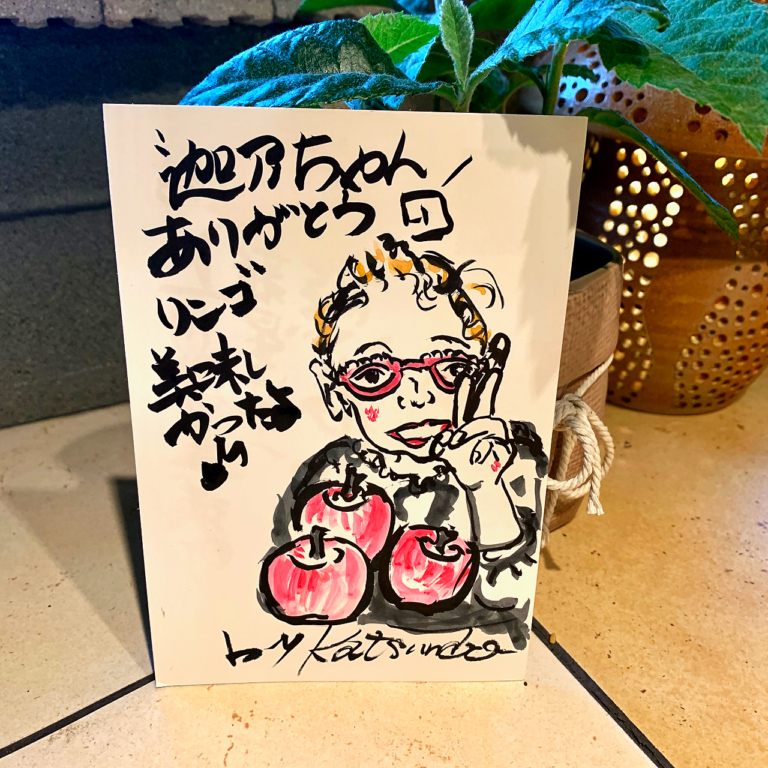 迦アちゃん
ありがとう
リンゴ
美味し
かったよ
by Katsundo